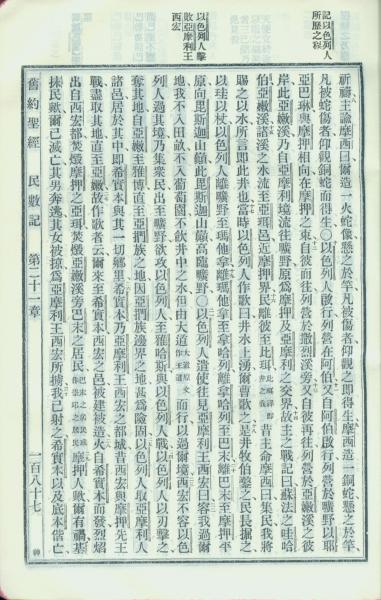 記以色列人
所歷之程
以色列人擊
敗亞摩利王
西宏
祈禱主諭摩西曰爾造一火蛇像懸之於竿凡被傷者仰觀之即得生摩西造一銅蛇懸之於竿
凡被蛇傷者仰觀銅蛇而得生○以色列人啟行列營在阿伯又自阿伯啟行列營於曠野以耶
亞巴琳與摩押相向在摩押之東自彼而往列營於撒烈溪旁又自彼再往列營於亞嫩溪之彼
岸此亞嫩溪乃自亞摩利境流往曠野原為摩押及亞摩利之交界故主之戰記曰蘇法之哇哈
伯亞嫩溪諸溪之水流至亞珥邑近摩押界民離彼至比珥比珥譯即井之義昔主命摩西曰集民我將
賜之以水所言即此井也當時以色列人作歌曰井水上湧爾曹歌之是井牧伯鑿之民長掘之
以圭以杖以色列人離曠野至瑪他拿離瑪他拿至拿哈列離拿哈列至巴末離巴末至摩押平
原向毘斯迦山巔此毘斯迦山巔高臨曠野○以色列人遣使往見亞摩利王西宏曰容我過爾
地我不入田畝不入葡萄園不飲井中之水但由大道大道原文作王道而行以過爾境西宏不容以色
列人過其境乃集眾民出至曠野欲攻以色列人至雅哈斯與以色列人戰以色列人以刃擊之
奪其地自亞嫩至雅博直至亞捫族之地因亞捫族邊界之地甚為險固以色列人取亞摩利人
諸邑居於其中即希實本與其一切鄉里希實本乃亞摩利王西宏之都城昔西宏與摩押先王
戰盡取其地直至亞嫩故作歌者云爾來至希實本西宏之邑被建被造火自希實本而發烈焰
出自西宏都焚燬摩押之亞珥焚燬亞嫩溪旁巴末之居民摩押人歟爾有禍基
抹民歟爾已滅亡其男奔逃其女被擄為亞摩利王西宏所擄我已射之希實本以及底本偕亡
舊約聖經 民數記 第二十一章 一百八十七